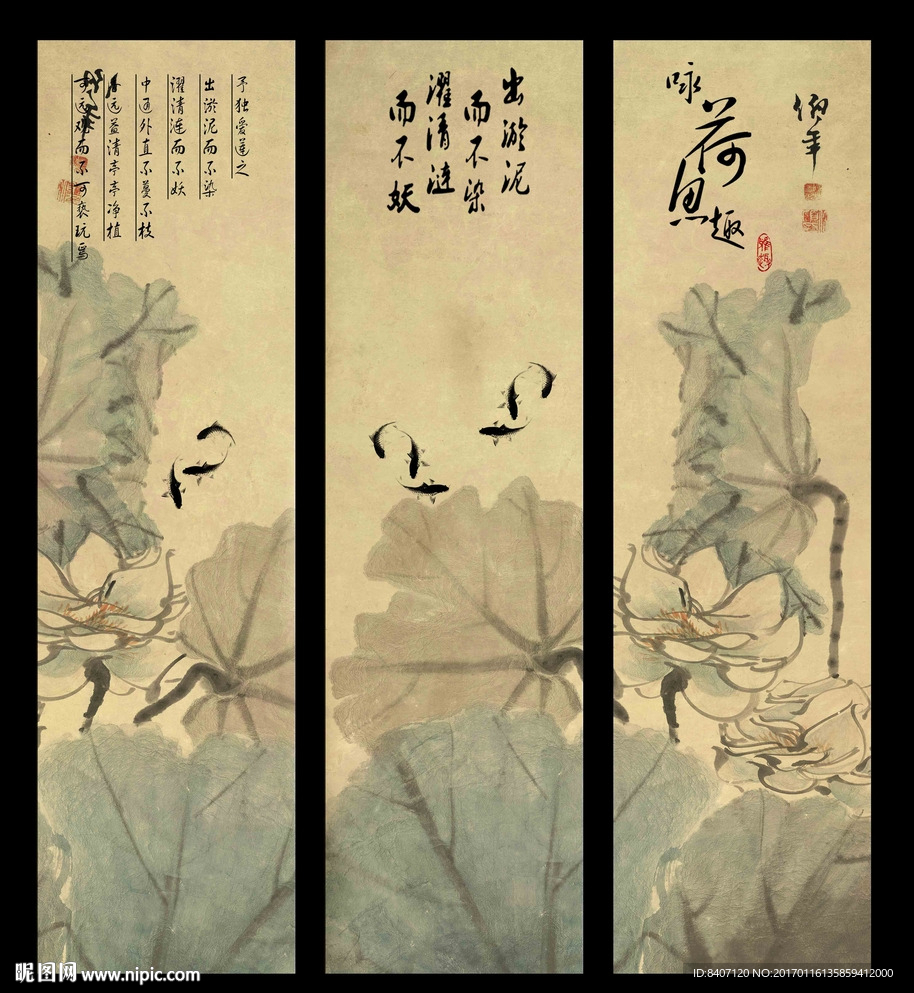 予独爱莲之
出淤泥而不染
濯清涟而不妖
中通外直不蔓不枝
香远益清亭亭净植
可远观而不可亵玩焉
出淤泥
而不染
濯清涟
而不妖
咏
荷
思
趣
伯年
昵图网 www.nipic.com
ID:8407120 NO:20170116135859412000